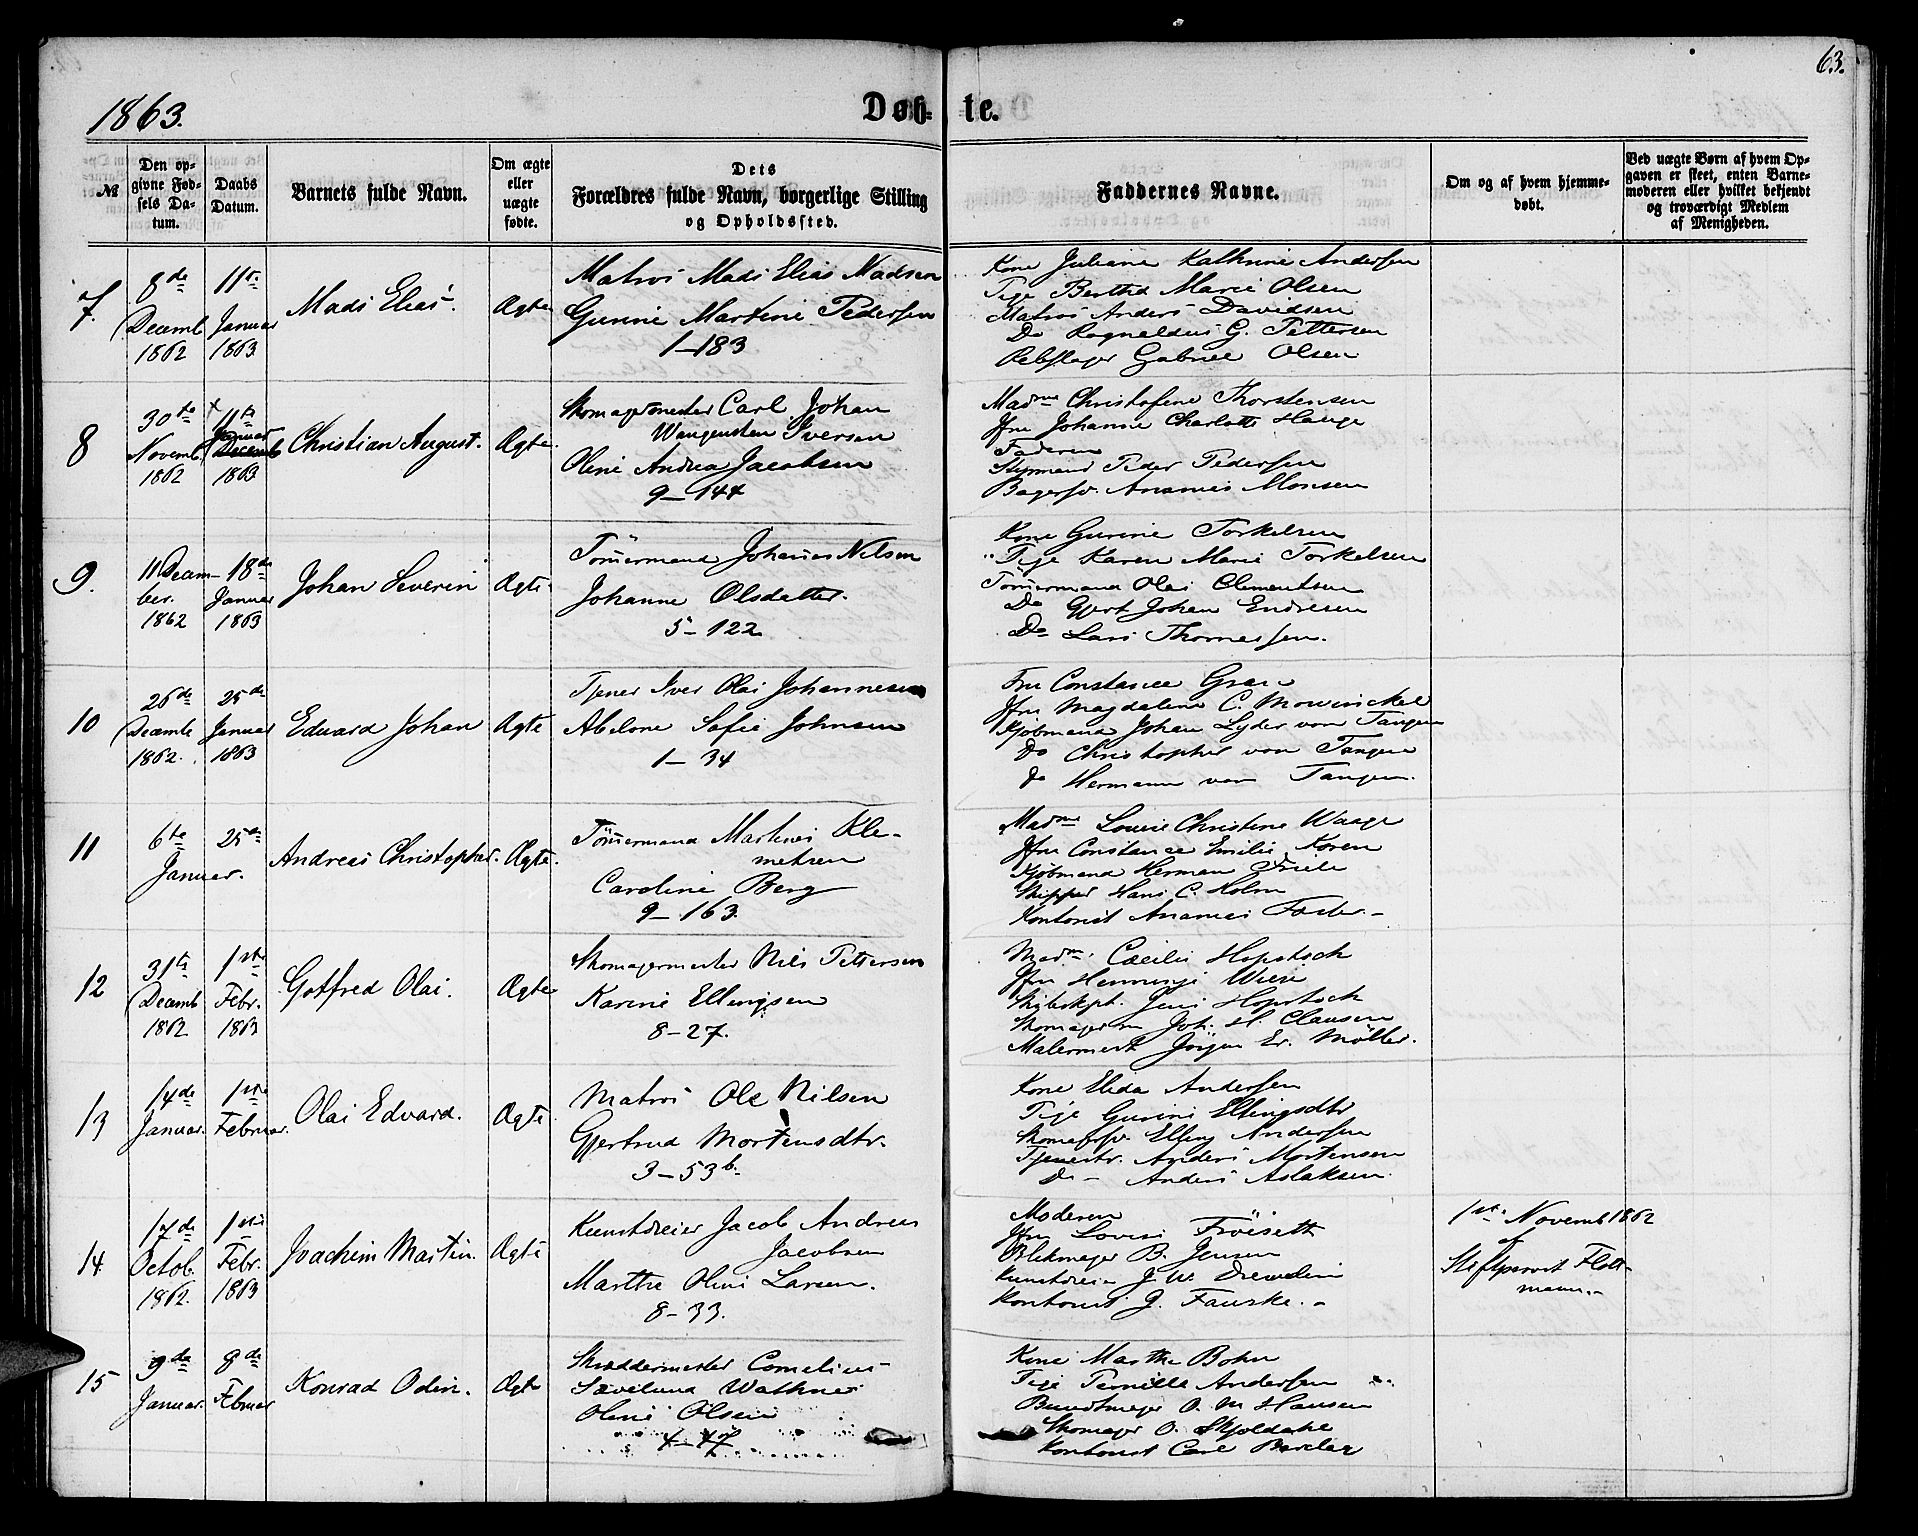 63.
1863.
Døb- te.
№
Den op-
givne Fød-
sels Da-
tum.
Daabs
Datum.
Barnets fulde Navn.
Om ægte
eller
uægte
fødte.
Dets
Forældres fulde Navn, borgerlige Stilling
og Opholdssted.
Faddernes Navne.
Om og af hvem hjemme-
døbt.
Ved uægte Børn af hvem Op-
gaven er skeet, enten Barne-
moderen eller hvilket bekjendt
og troværdigt Medlem
af Menigheden.
7.
8de
Decemb
1862
11te
Januar
1863
Mads Elias.
Ægte
Matros Mads Elias Madsen
Gurine Martine Pedersen
1-183
Kone Juliane Kathrine Andersen
Pige Berthe Marie Olsen
Matros Anders Davidsen
Do Ragnaldus G. Pettersen
Rebslager Gabriel Olsen
8
30te
Novemb.
1862
11te
Januar
Decemb
1863
Christian August.
Ægte.
Skomagermester Carl Johan
Wangensten Iversen
Oline Andrea Jacobsen
9-144
Madme Christofine Thorstensen
Jfru Johanne Charlotte Hauge
Faderen
Styrmand Peder Pedersen
Bagersv. Ananias Monsen
9.
11 Decem-
ber.
1862
18de
Januar
1863
Johan Severin
Ægte
Tömmermand Johannes Nilsen
Johanne Olsdatter.
5-122
Kone Gurine Torkelsen
Pige Karen Marie Torkelsen
Tömmermand Olai Clementsen
Do Gjert Johan Endresen
Do Lars Thomassen.
10
26de
Decemb
1862.
25de
Januar
1863
Edvard Johan
Ægte
Tjener Iver Olai Johannesen
Abelone Sofie Johnsen
1-34
Fru Constance Gran
Jfru Magdalene C. Mowinckel
Kjöbmand Johan Lyder von Tangen
Do Christopher von Tangen
do Hermann von Tangen.
11
6te
25de
Januar.
Andreas Christopher.
Ægte.
Tömmermand Martinus Kle-
metsen
Caroline Berg
9-163.
Madme Lovise Christine Waage
Jfru Constance Emilie Koren
Kjöbmand Herman Friele
Skipper Hans C. Holm
Kontorist Ananias Faster.-
12
31te
Decemb
1862
1ste
Febr.
1863
Gotfred Olai.
Ægte
Skomagermester Nils Pettersen
Karine Ellingsen
8-27.
Madme Cæcilie Hopstock
Jfru Henninge Wiese
Skibskpt. Jens Hopstock
Skomagerm Joh. H. Clausen
Malermest Jörgen Er. Møller.
13
14de
Januar.
1ste
Februar.
Olai Edvard.
Ægte
Matros Ole Nilsen
Gjertrud Mortensdtr.
3-53b.
Kone Elida Andersen
Pige Gurine Ellingsdtr
Skomagersv. Elling Andersen
Tjenestk. Anders Mortensen
Do - Anders Aslaksen.
14
17de
Octob.
1862.
1ste
Febr.
1863
Joachim Martin.
Ægte
Kunstdreier Jacob Andreas
Jacobsen
Marthe Oline Larsen.
8-33.
Moderen
Jfru Lovise Fröiseth
Blikmager B. Jensen
Kunstdreier J. W.
Kontorist J. Fauske.-
1ste Novemb 1862
af
Stiftsprovst Flott-
mann.-
15
9de
Januar.
8de
Februar
Konrad Odin.
Ægte
Skræddermester Cornelius
Wathne
Oline Olsen
4-47
Kone Marthe Bohn
Pige Pernille Andersen
Bundtmager O. M. Hansen
Skomager O. Skjoldahl
Kontorist Carl Barclay